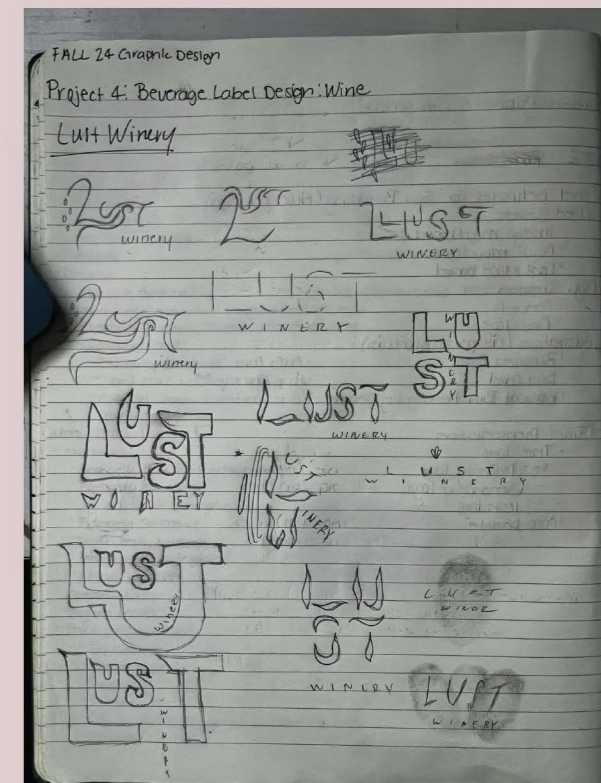 FALL 24 Graphic Design
Project 4: Beverage Label Design: Wine
Lust Winery
Lust
winery
Lust
LUST
WINERY
Lust
winery
LUST
WINERY
LU
ST
WINERY
LUST
WINEY
LUST
WINERY
LUST
WINERY
LUST
WINERY
LUST
Winery
LU
ST
WINERY
LUST
WINE
LUST
WINERY
LUST
WINERY